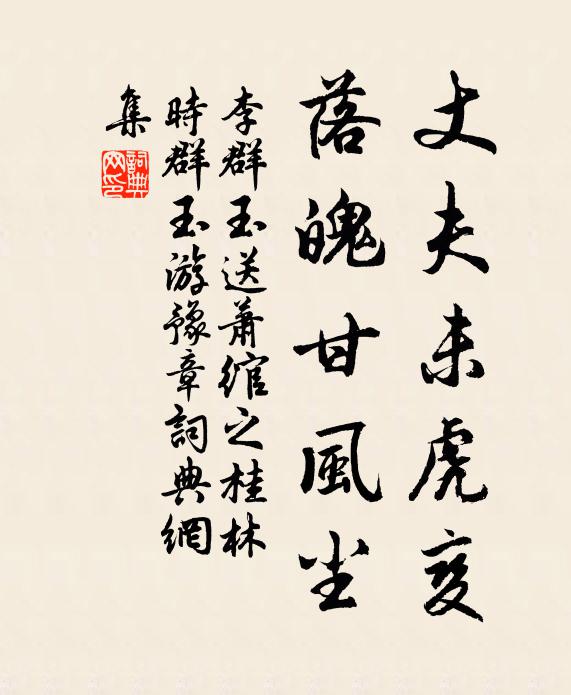 丈夫未虎变
落魄甘風尘
李群玉送萧绾之桂林
時群玉游豫章詞典網
集
詞典网印